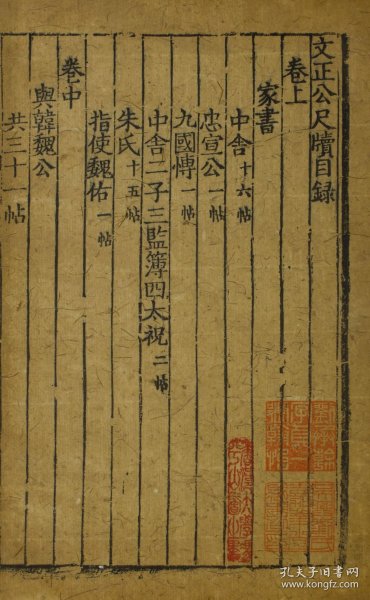 文正公尺牘目錄
卷上
家書
中舍十六帖
忠宣公一帖
九國博一帖
中舍二子三監簿四太祝二帖
朱氏十五帖
指使魏佑一帖
卷中
與韓魏公
共三十一帖
孔夫子旧书网
www.kongfz.com